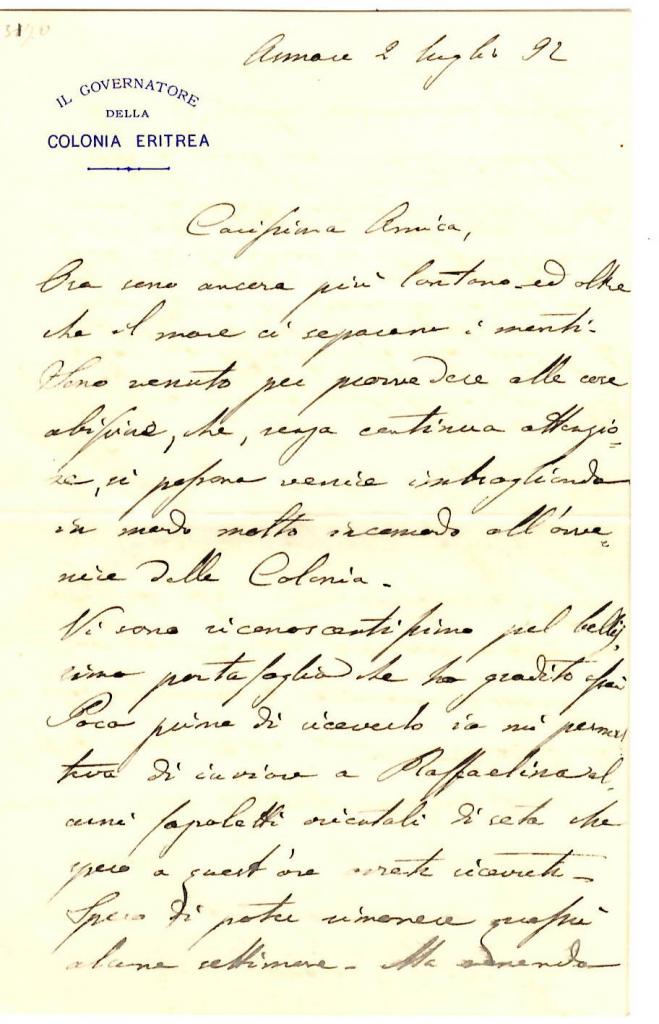 5120
Asmara 2 luglio 92
IL GOVERNATORE
DELLA
COLONIA ERITREA
Carissima Amica,
Ora sono ancora più lontano ed oltre
che il mare ci separano i monti.
Sono venuto per provvedere alle cose
abissine, che, senza continua attenzio=
ne, si possono venire imbrogliando
in modo molto incomodo all'avve=
nire della Colonia.
Vi sono riconoscentissimo pel bellis
simo portafoglio che ho gradito assai
Poco prima di riceverlo io mi permet
teva di inviare a Raffaelina al
cuni fazoletti orientali di seta che
spero a quest'ora avrete ricevuti.
Spero di poter rimanere quassù
alcune settimane. Ma venendo